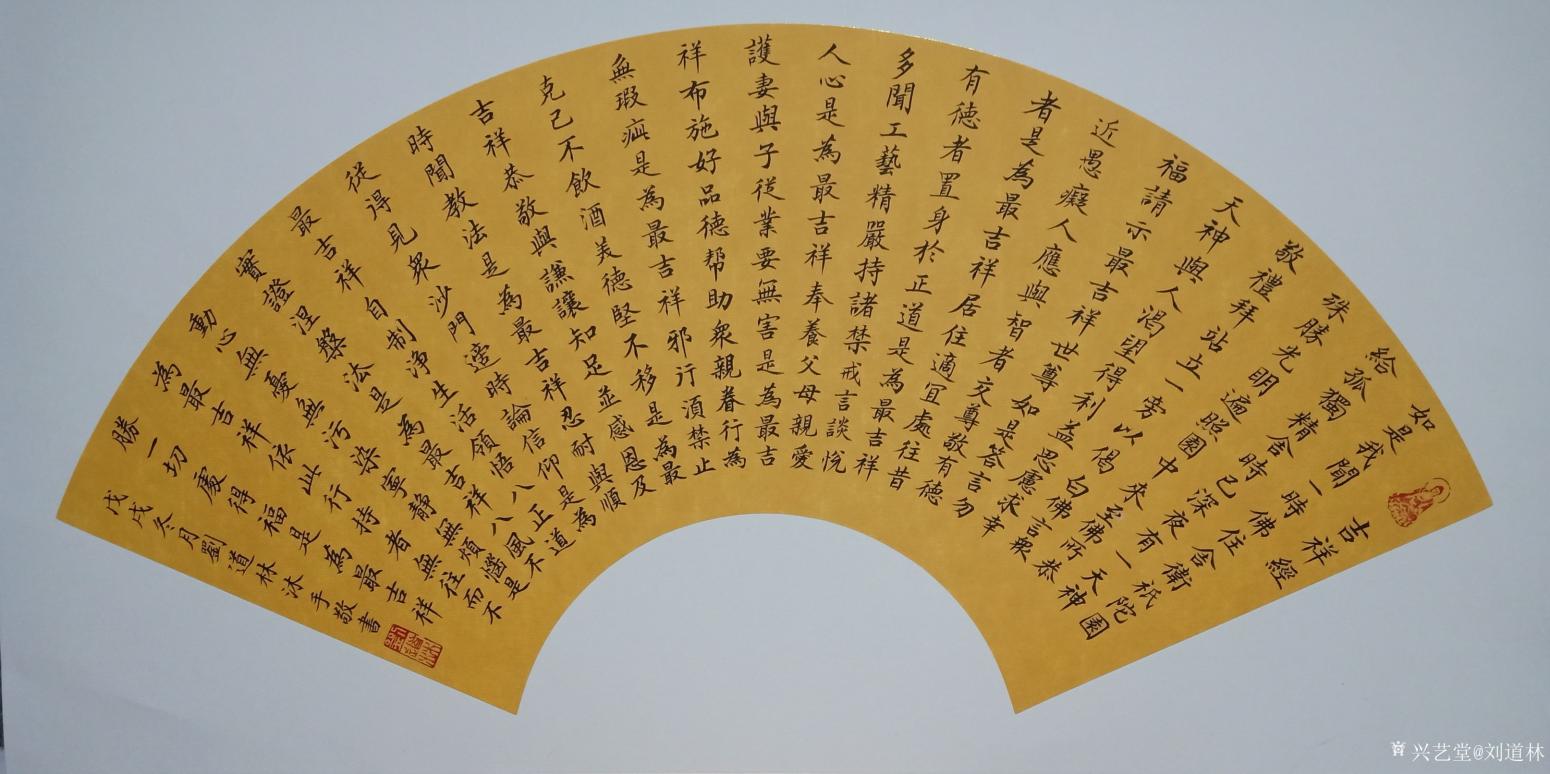 吉祥經
如是我聞一時佛住舍衛祇陀園
給孤獨精舍時已深夜有一天神
殊勝光明遍照園中來至佛所恭
敬禮拜站立一旁以偈白佛言眾
天神與人渴望得利益思慮求幸
福請示最吉祥世尊如是答言勿
近愚癡人應與智者交尊敬有德
者是為最吉祥居住適宜處往昔
有德者置身於正道是為最吉祥
多聞工藝精嚴持諸禁戒言談悅
人心是為最吉祥奉養父母親愛
護妻與子從業要無害是為最吉
祥布施好品德幫助眾親眷行為
無瑕疵是為最吉祥邪行須禁止
克己不飲酒美德堅不移是為最
吉祥恭敬與謙讓知足並感恩及
時聞教法是為最吉祥忍耐與順
從得見眾沙門適時論信仰是為
最吉祥自制淨生活領悟八正道
實證涅槃法是為最吉祥八風不
動心無憂無污染寧靜無煩惱是
為最吉祥依此行持者無往而不
勝一切處得福是為最吉祥
戊戌冬月劉道林沐手敬書
兴艺堂@刘道林